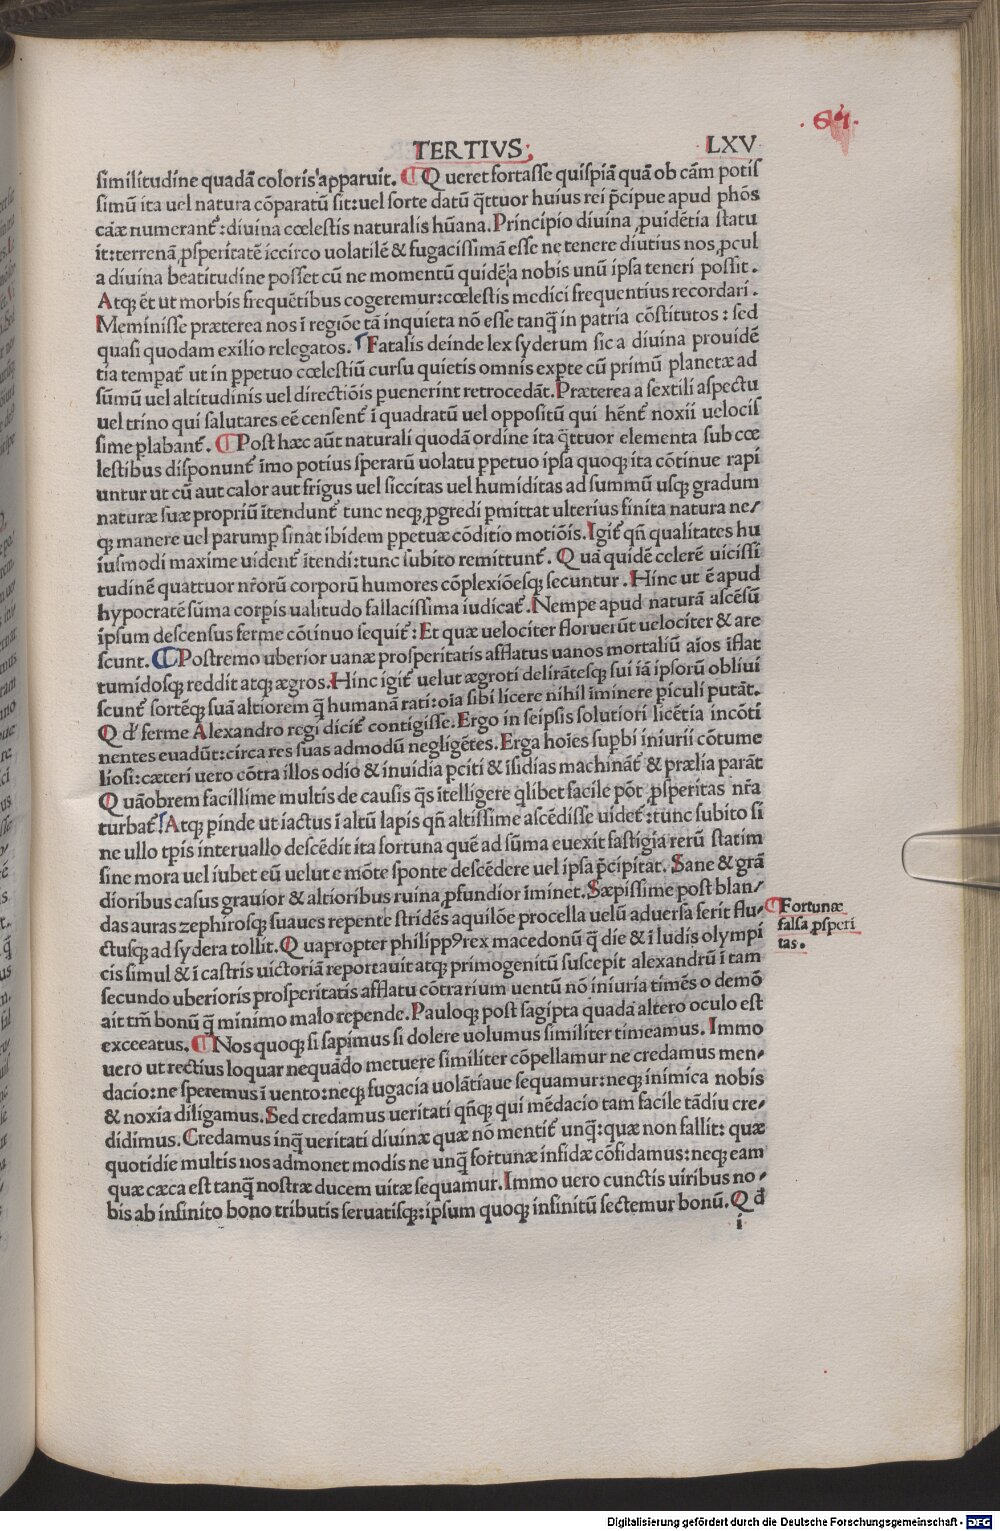 .64.
TERTIVS
LXV
similitudine quadã coloris apparuit. Queret fortasse quispiã quã ob cãm potis
simũ ita uel natura cõparatũ sit: uel sorte datũ q̃ttuor huius rei p̃cipue apud phõs
cãæ numerant᷑: diuina cœlestis naturalis hũana. Principio diuina ꝓuidẽtia statu
it: terrenã ꝓsperitatẽ iccirco uolatilẽ & fugacissimã esse ne tenere diutius nos ꝓcul
a diuina beatitudine posset cũ ne momentũ quidẽ a nobis unũ ipsa teneri possit.
Atqꝫ ẽt ut morbis frequẽtibus cogeremur: cœlestis medici frequentius recordari.
Meminisse præterea nos ĩ regiõe tã inquieta nõ esse tanq̃ in patria cõstitutos: sed
quasi quodam exilio relegatos. Fatalis deinde lex syderum sic a diuina prouidẽ
tia temperat᷑ ut in ꝑpetuo cœlestiũ cursu quietis omnis expte cũ primũ planetæ ad
sũmũ uel altitudinis uel directiõis puenerint retrocedãt. Præterea a sextili aspectu
uel trino qui salutares eẽ censent᷑ ĩ quadratũ uel oppositũ qui hẽnt᷑ noxii uelocis
sime ꝑlabant᷑. Post hæc aũt naturali quodã ordine ita q̃ttuor elementa sub cœ
lestibus disponunt᷑ ĩmo potius sperarũ uolatu ꝑpetuo ipsa quoqꝫ ita cõtinue rapi
untur ut cũ aut calor aut frigus uel siccitas uel humiditas ad summũ usqꝫ gradum
naturæ suæ propriũ ĩtendunt᷑ tunc neqꝫ ꝓgredi ꝑmittat ulterius finita natura ne/
qꝫ manere uel parumꝑ sinat ibidem ꝑpetuæ cõditio motiõis. Igit᷑ qñ qualitates hu
iusmodi maxime uident᷑ ĩtendi: tunc subito remittunt᷑. Quã quidẽ celerẽ uicissi
tudinẽ quattuor nr̃orũ corporũ humores cõplexiõesqꝫ secuntur. Hinc ut ẽ apud
hypocratẽ sũma corpis ualitudo fallacissima iudicat᷑. Nempe apud naturã ascẽsũ
ipsum descensus ferme cõtinuo sequit᷑: Et quæ uelociter floruerũt uelociter & are
scunt. Postremo uberior uanæ prosperitatis afflatus uanos mortaliũ aĩos ĩflat
tumidosqꝫ reddit atqꝫ ægros. Hinc igit᷑ uelut ægroti delirãtesqꝫ sui iã ipsorũ obliui
scunt᷑ sortẽqꝫ suã altiorem q̃ humanã rati: oĩa sibi licere nihil ĩminere piculi putãt.
Qd᷑ ferme Alexandro regi dicit᷑ contigisse. Ergo in seipsis solutiori licẽtia incõti
nentes euadũt: circa res suas admodũ negligẽtes. Erga hoĩes supbi iniurii cõtume
liosi: cæteri uero cõtra illos odio & inuidia ꝑciti & ĩsidias machinãt᷑ & prælia parãt
Quãobrem facillime multis de causis q̃s ĩtelligere qlibet facile põt ꝓsperitas nr̃a
turbat᷑! Atqꝫ ꝑinde ut iactus ĩ altũ lapis qñ altissime ascẽdisse uidet᷑: tunc subito si
ne ullo tp̃is interuallo descẽdit ita fortuna quẽ ad sũma euexit fastigia rerũ statim
sine mora uel iubet eũ uelut e mõte sponte descẽdere uel ipsa p̃cipitat. Sane & grã
dioribus casus grauior & altioribus ruina ꝓfundior ĩminet. Sæpissime post blan/
das auras zephirosqꝫ suaues repente stridẽs aquilõe procella uelũ aduersa ferit flu/
ctusqꝫ ad sydera tollit. Quapropter philippꝰ rex macedonũ q̃ die & ĩ ludis olympi
cis simul & ĩ castris uictoriã reportauit atqꝫ primogenitũ suscepit alexandrũ ĩ tam
secundo uberioris prosperitatis afflatu cõtrarium uentũ nõ iniuria timẽs o demõ
ait trñ bonũ q̃ minimo malo repende. Pauloqꝫ post sagipta quadã altero oculo est
exceeatus. Nos quoqꝫ si sapimus si dolere uolumus similiter timeamus. Immo
uero ut rectius loquar nequãdo metuere similiter cõpellamur ne credamus men/
dacio: ne speremus ĩ uento: neqꝫ fugacia uolãtiaue sequamur: neqꝫ inimica nobis
& noxia diligamus. Sed credamus ueritati qñqꝫ qui mẽdacio tam facile tãdiu cre/
didimus. Credamus inq̃ ueritati diuinæ quæ nõ mentit᷑ unq̃: quæ non fallit: quæ
quotidie multis nos admonet modis ne unq̃ fortunæ infidæ cõfidamus: neqꝫ eam
quæ cæca est tanq̃ nostræ ducem uitæ sequamur. Immo uero cunctis uiribus no/
bis ab infinito bono tributis seruatisqꝫ: ipsum quoqꝫ infinitũ sectemur bonũ. Qd̃
i
Fortunæ
falsa ꝓsperi
tas.
Digitalisierung gefördert durch die Deutsche Forschungsgemeinschaft - DFG